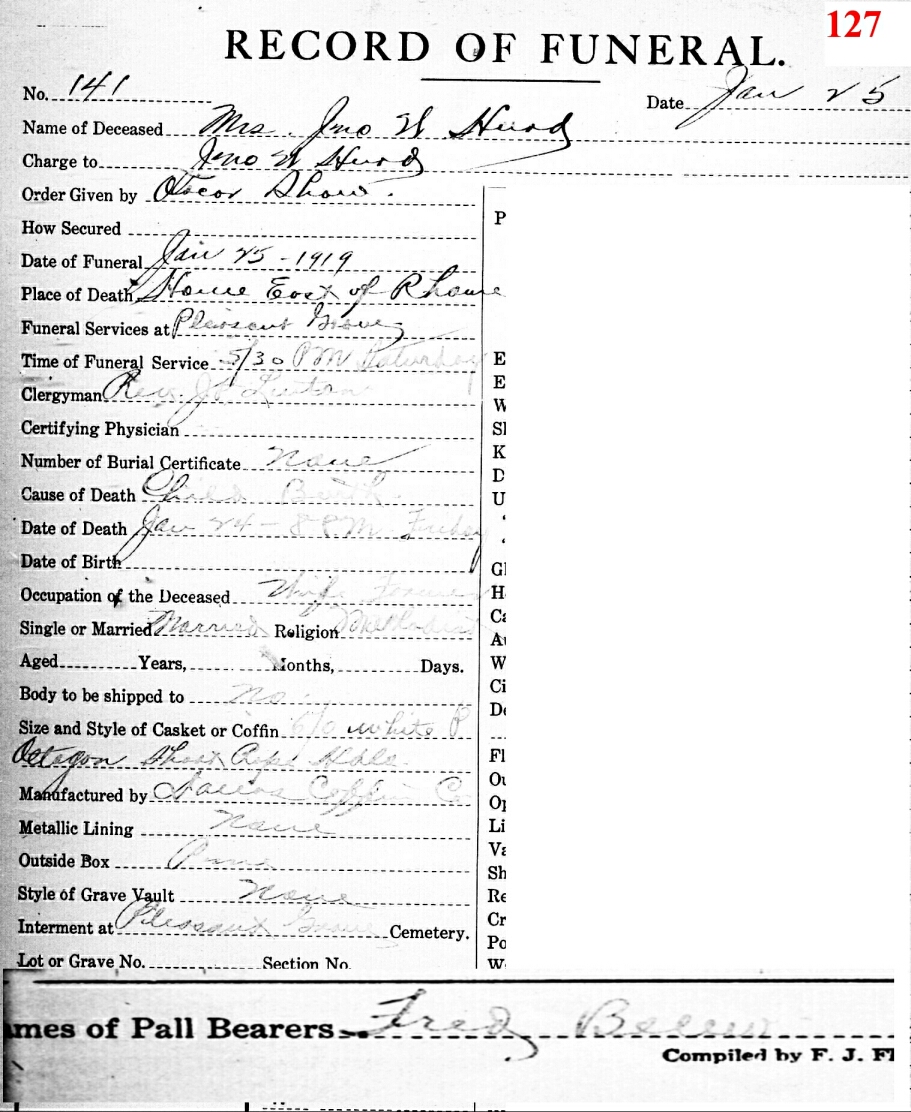 127
RECORD OF FUNERAL.
No. 141
Date Jan 25
Name of Deceased Mrs. Jno W Hurd
Charge to Jno W Hurd
Order Given by Oscar Shaw.
P
How Secured
Date of Funeral Jan 25-1919
Place of Death Home East of Rhome
Funeral Services at Pleasant Grove
Time of Funeral Service 5/30 PM Saturday
E
Clergyman Rev. J
E
W
Certifying Physician
Sl
Number of Burial Certificate None
K
D
Cause of Death Child Birth
U
Date of Death Jan 24 - 8 PM Friday
Date of Birth
Gl
Occupation of the Deceased Wife Farmer
H
Ca
Single or Married Married Religion Methodist
Au
Aged Years, Months, Days.
W
Body to be shipped to No.
Ci
De
Size and Style of Casket or Coffin 6/0 White P
Octagon Short Hdls
Fl
Ou
Manufactured by Dallas Coffin Co
Op
Metallic Lining None
Li
Va
Outside Box Pine
Sh
Style of Grave Vault None
Re
Interment at Pleasant Grove Cemetery.
Cr
Po
Lot or Grave No. Section No.
W
mes of Pall Bearers Fred
Compiled by F. J. Fl